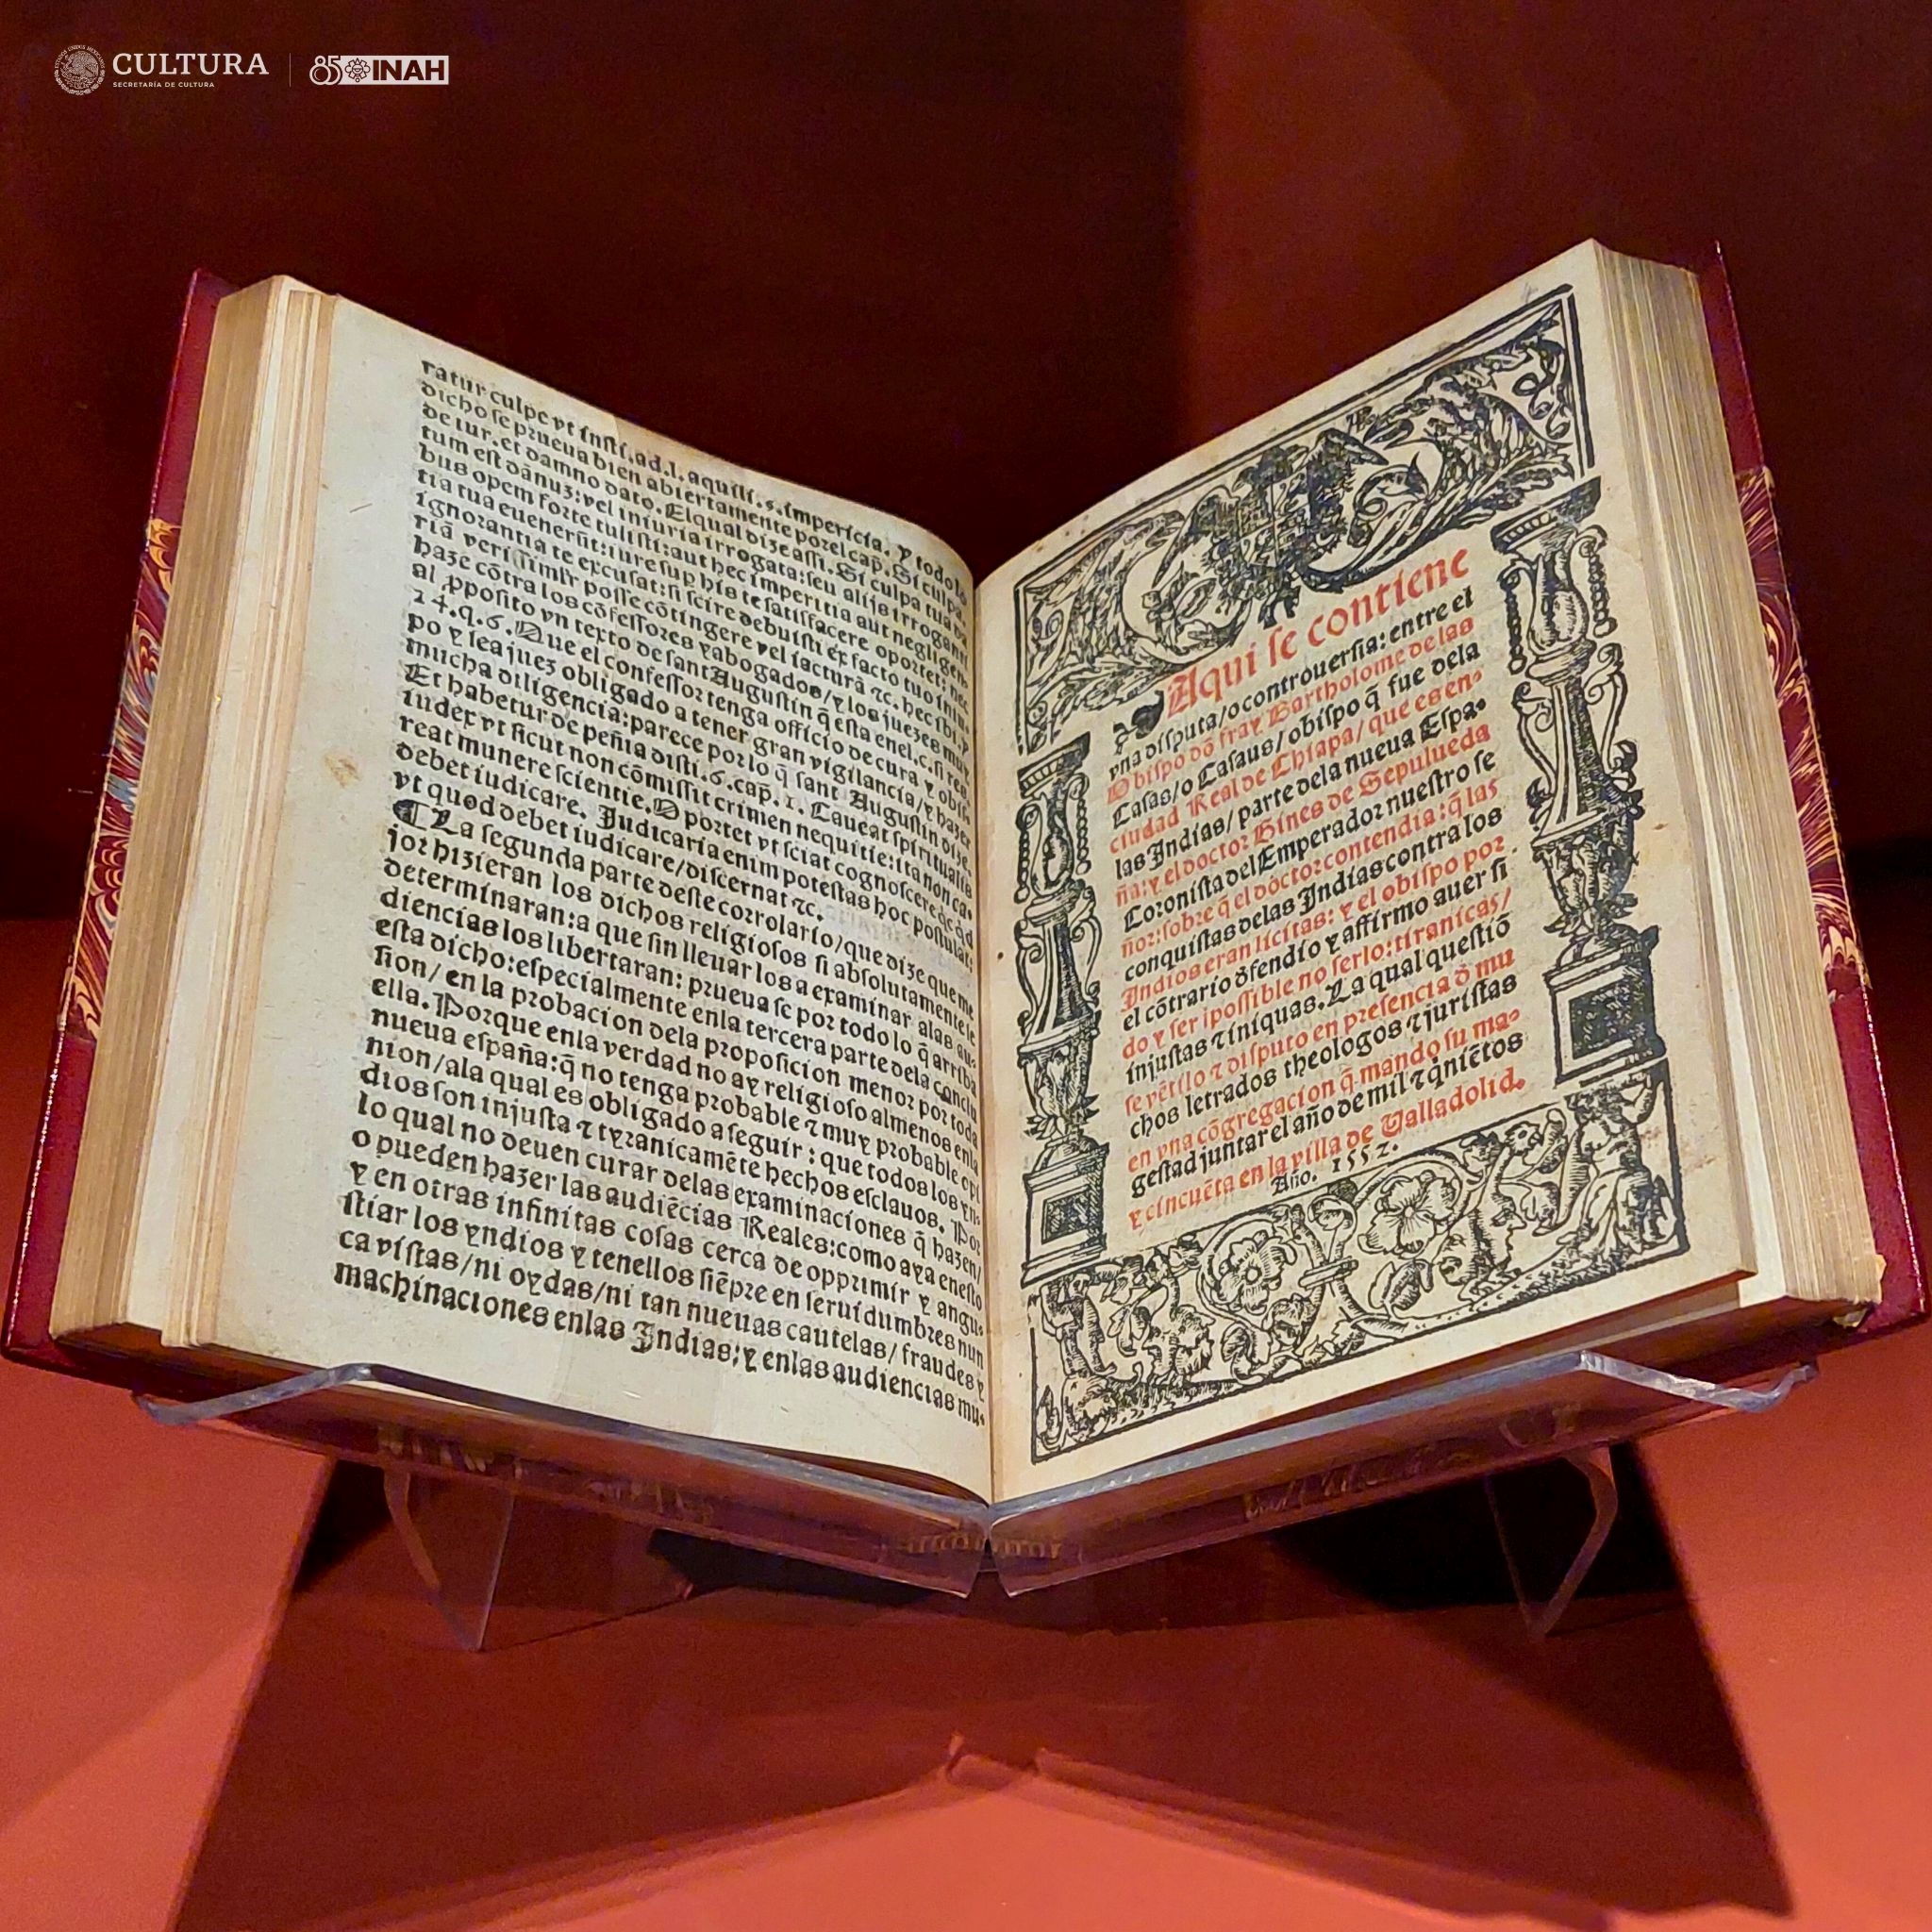 CULTURA
SECRETARÍA DE CULTURA
85 INAH
ratur culpe vt insti.ad.l.aquili.s.impericia. Y todo lo
dicho se prueua bien abiertamente por el cap̄. Si culpa
de iur. et damno dato. El qual dize assi. Si culpa tua da
tum est dānuȝ: vel iniuria irrogata: seu alijs irroganti
bus opem forte tulisti: aut hec imperitia aut negligen-
tia tua euenerūt: iure sup his te satisfacere oportet: nec
ignorantia te excusat: si scire debuisti ex facto tuo iniu-
riā verisimilr posse cōtingere vel iacturā ⁊c. hec ibi. y
haze cōtra los cōfessores y abogados/ y los juezes muy
al ꝓposito vn texto de sant Augustin q̄ esta enel.c.si res.
14.q.6. Que el confessor tenga officio de cura y obis-
po y sea juez obligado a tener gran vigilancia/ y hazer
mucha diligencia: parece por lo q̄ sant Augustin dize.
Et habetur de peñia disti.6.cap̄. 1. Caueat spiritualis
iudex vt sicut non cōmissit crimen nequitie: ita non ca-
reat munere scientie. Oportet vt sciat cognoscere q̄cq̄d
debet iudicare. Judicaria enim potestas hoc postulāt:
vt quod debet iudicare/ discernat ⁊c.
¶ La segunda parte deste corrolario/ que dize que me
jor hizieran los dichos religiosos si absolutamente le
determinaran: a que sin lleuar los a examinar alas au-
diencias los libertaran: prueua se por todo lo q̄ arriba
esta dicho: especialmente enla tercera parte dela conclu
sion/ en la probacion dela proposicion menor por toda
ella. Porque enla verdad no ay religioso almenos enla
nueua españa: q̄ no tenga probable ⁊ muy probable opi
nion/ ala qual es obligado a seguir: que todos los yn-
dios son injusta ⁊ tyranicamēte hechos esclauos. Por
lo qual no deuen curar delas examinaciones q̄ hazen/
o pueden hazer las audiēcias Reales: como aya enesto
y en otras infinitas cosas cerca de opprimir y angu-
stiar los yndios y tenellos siēpre en seruidumbres nun
ca vistas/ ni oydas/ ni tan nueuas cautelas/ fraudes y
machinaciones enlas Indias: y enlas audiencias mu-
Aqui se contiene
vna disputa/ o controuersia: entre el
Obispo dō fray Bartholome de las
Casas/ o Casaus/ obispo q̄ fue dela
ciudad Real de Chiapa/ que es en-
las Indias/ parte dela nueua Espa-
ña: y el doctor Gines de Sepulueda
Coronista del Emperador nuestro se
ñor: sobre q̄ el doctor contendia: q̄ las
conquistas delas Indias contra los
Indios eran licitas: y el obispo por
el cōtrario dfendio y affirmo auer si
do y ser ipossible no serlo: tiranicas/
injustas ⁊ iniquas. La qual questiō
se vētilo ⁊ disputo en presencia d mu
chos letrados theologos ⁊ juristas
en vna cōgregacion q̄ mando su ma-
gestad juntar el año de mil ⁊ qniētos
y cincuēta en la villa de Valladolid.
Año. 1552.